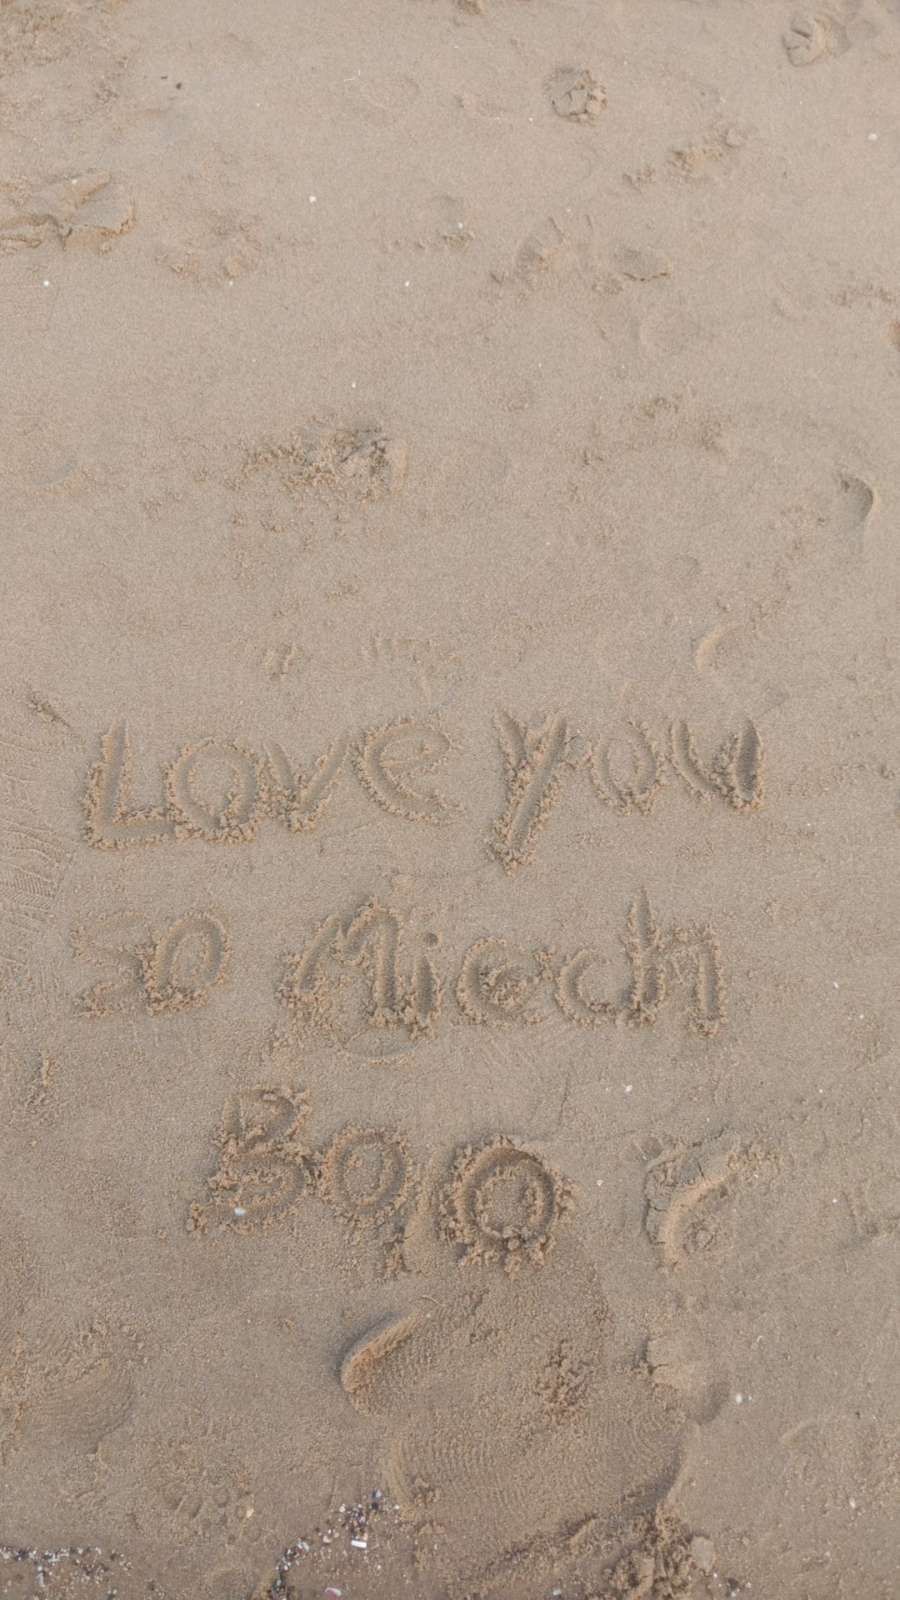 Love you
so Miech
Boo